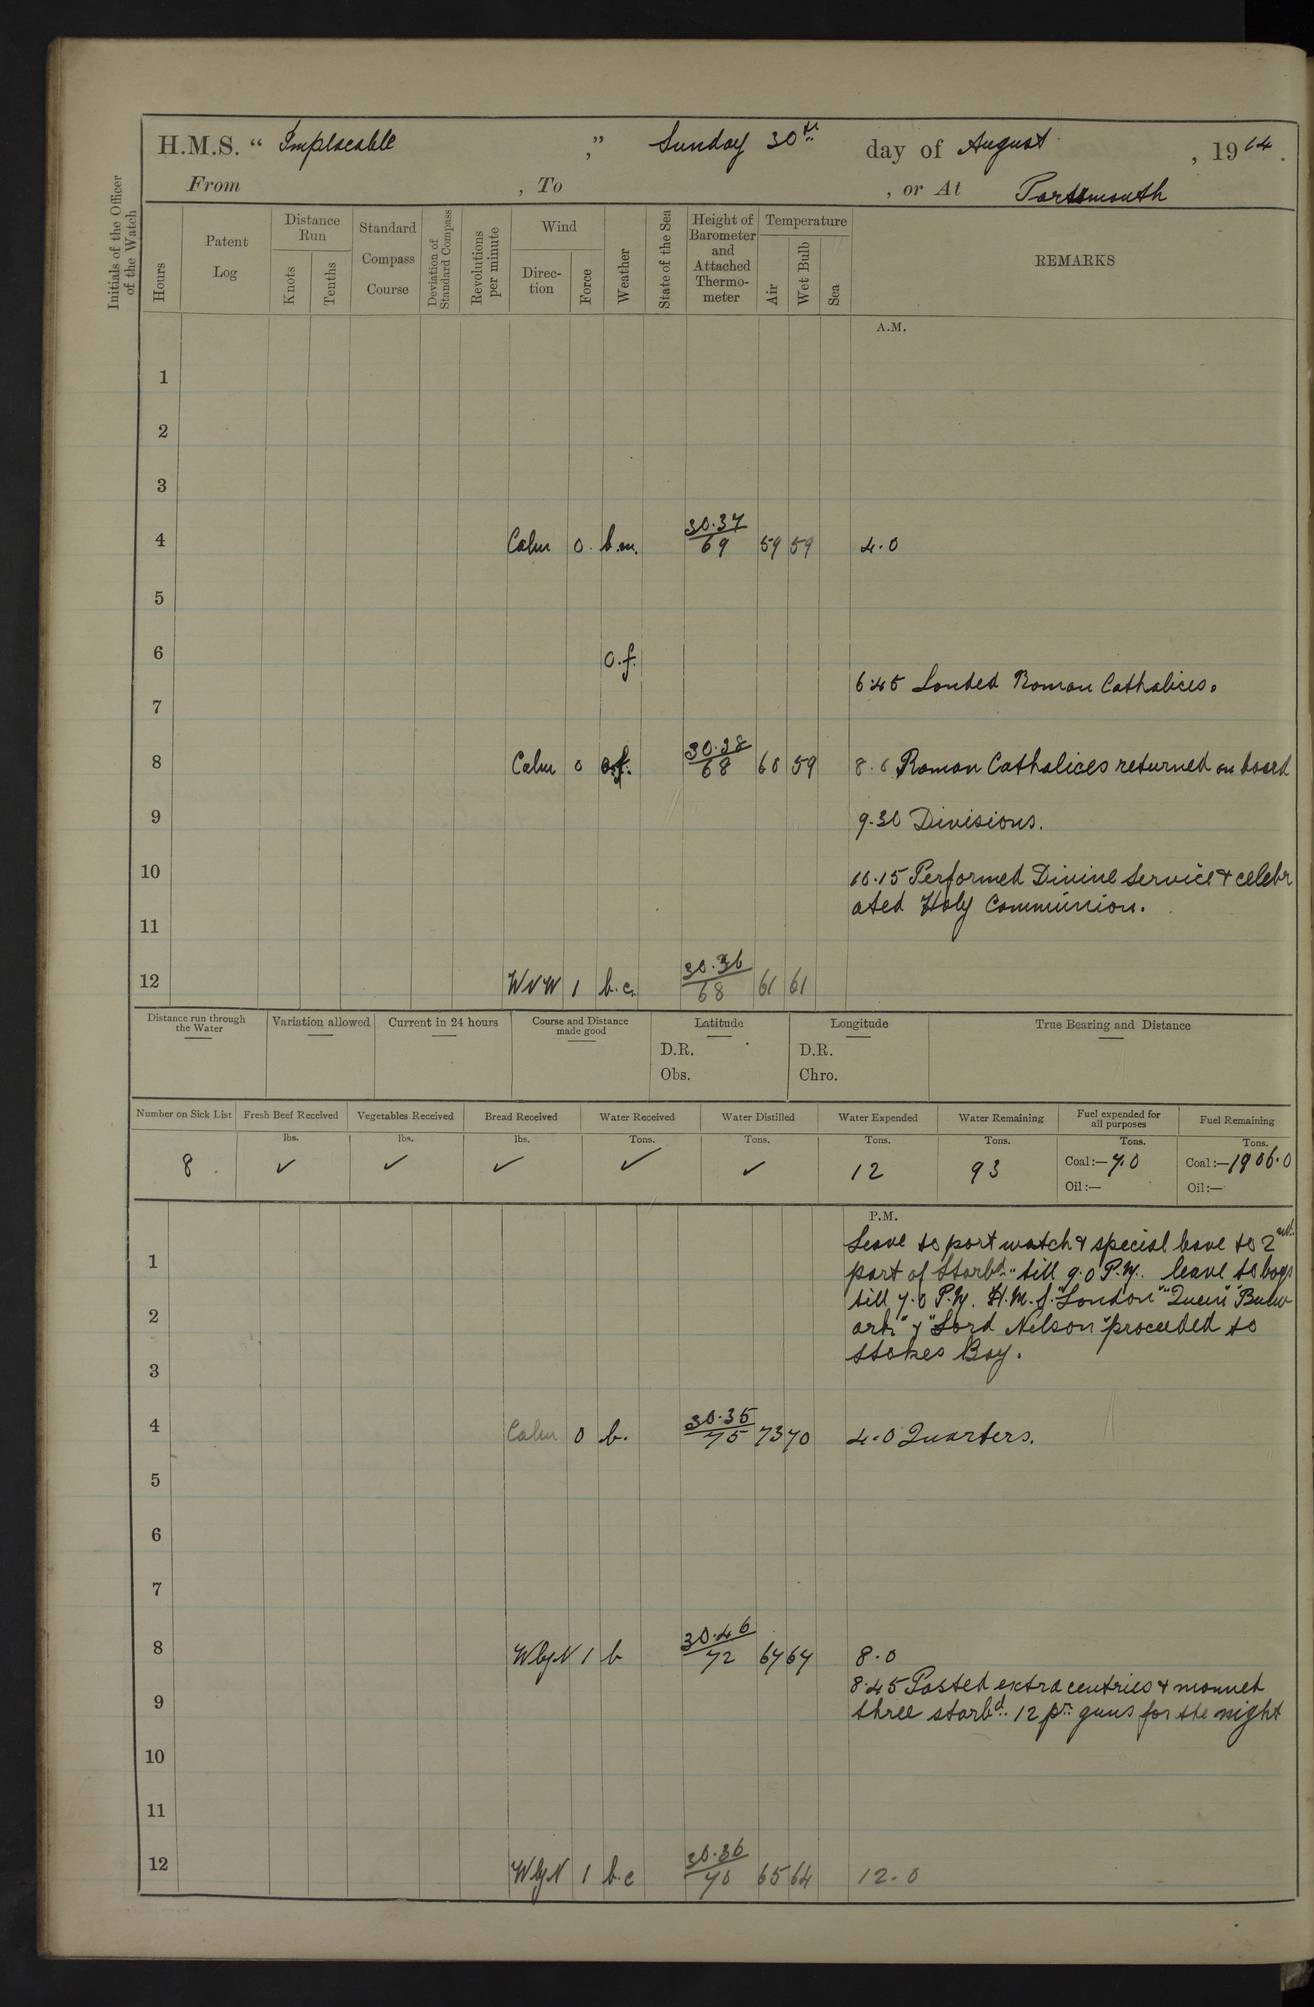 H.M.S. " Implacable ," Sunday 30th day of August , 1914.
From , To , or At Portsmouth
Initials of the Officer of the Watch
Hours
Patent Log
Distance Run
Knots
Tenths
Standard Compass Course
Deviation of Standard Compass
Revolutions per minute
Wind
Direc-tion
Force
Weather
State of the Sea
Height of Barometer and Attached Thermo-meter
Temperature
Air
Wet Bulb
Sea
REMARKS
A.M.
1
2
3
4 Calm 0 b.m. 30.37/69 59 59 4.0
5
6 o.f.
6.45 Landed Roman Catholices.
7
8 Calm 0 o.f. 30.38/68 60 59 8.0 Roman Catholices returned on board
9 9.30 Divisions.
10 10.15 Performed Divine Service & celebr
ated Holy Communion.
11
12 WNW 1 b.c. 30.36/68 61 61
Distance run through the Water
Variation allowed
Current in 24 hours
Course and Distance made good
Latitude
D.R.
Obs.
Longitude
D.R.
Chro.
True Bearing and Distance
Number on Sick List
Fresh Beef Received
Vegetables Received
Bread Received
Water Received
Water Distilled
Water Expended
Water Remaining
Fuel expended for all purposes
Fuel Remaining
lbs. lbs. lbs. Tons. Tons. Tons. Tons. Tons. Tons.
8 ✓ ✓ ✓ ✓ ✓ 12 93 Coal:— 7.0 Coal:— 1906.0
Oil:— Oil:—
P.M.
Leave to port watch & special leave to 2nd
1 part of Starbd. till 9.0 P.M. leave to boys
till 7.0 P.M. H.M.S. "London" "Queen" "Bulw
2 ark" & "Lord Nelson" proceeded to
Stokes Bay.
3
4 Calm 0 b. 30.35/75 73 70 4.0 Quarters.
5
6
7
8 WbyN 1 b 30.46/72 67 67 8.0
8.45 Posted extra centries & manned
9 three starbd. 12 pr. guns for the night
10
11
12 WbyN 1 b.c 30.36/70 65 64 12.0